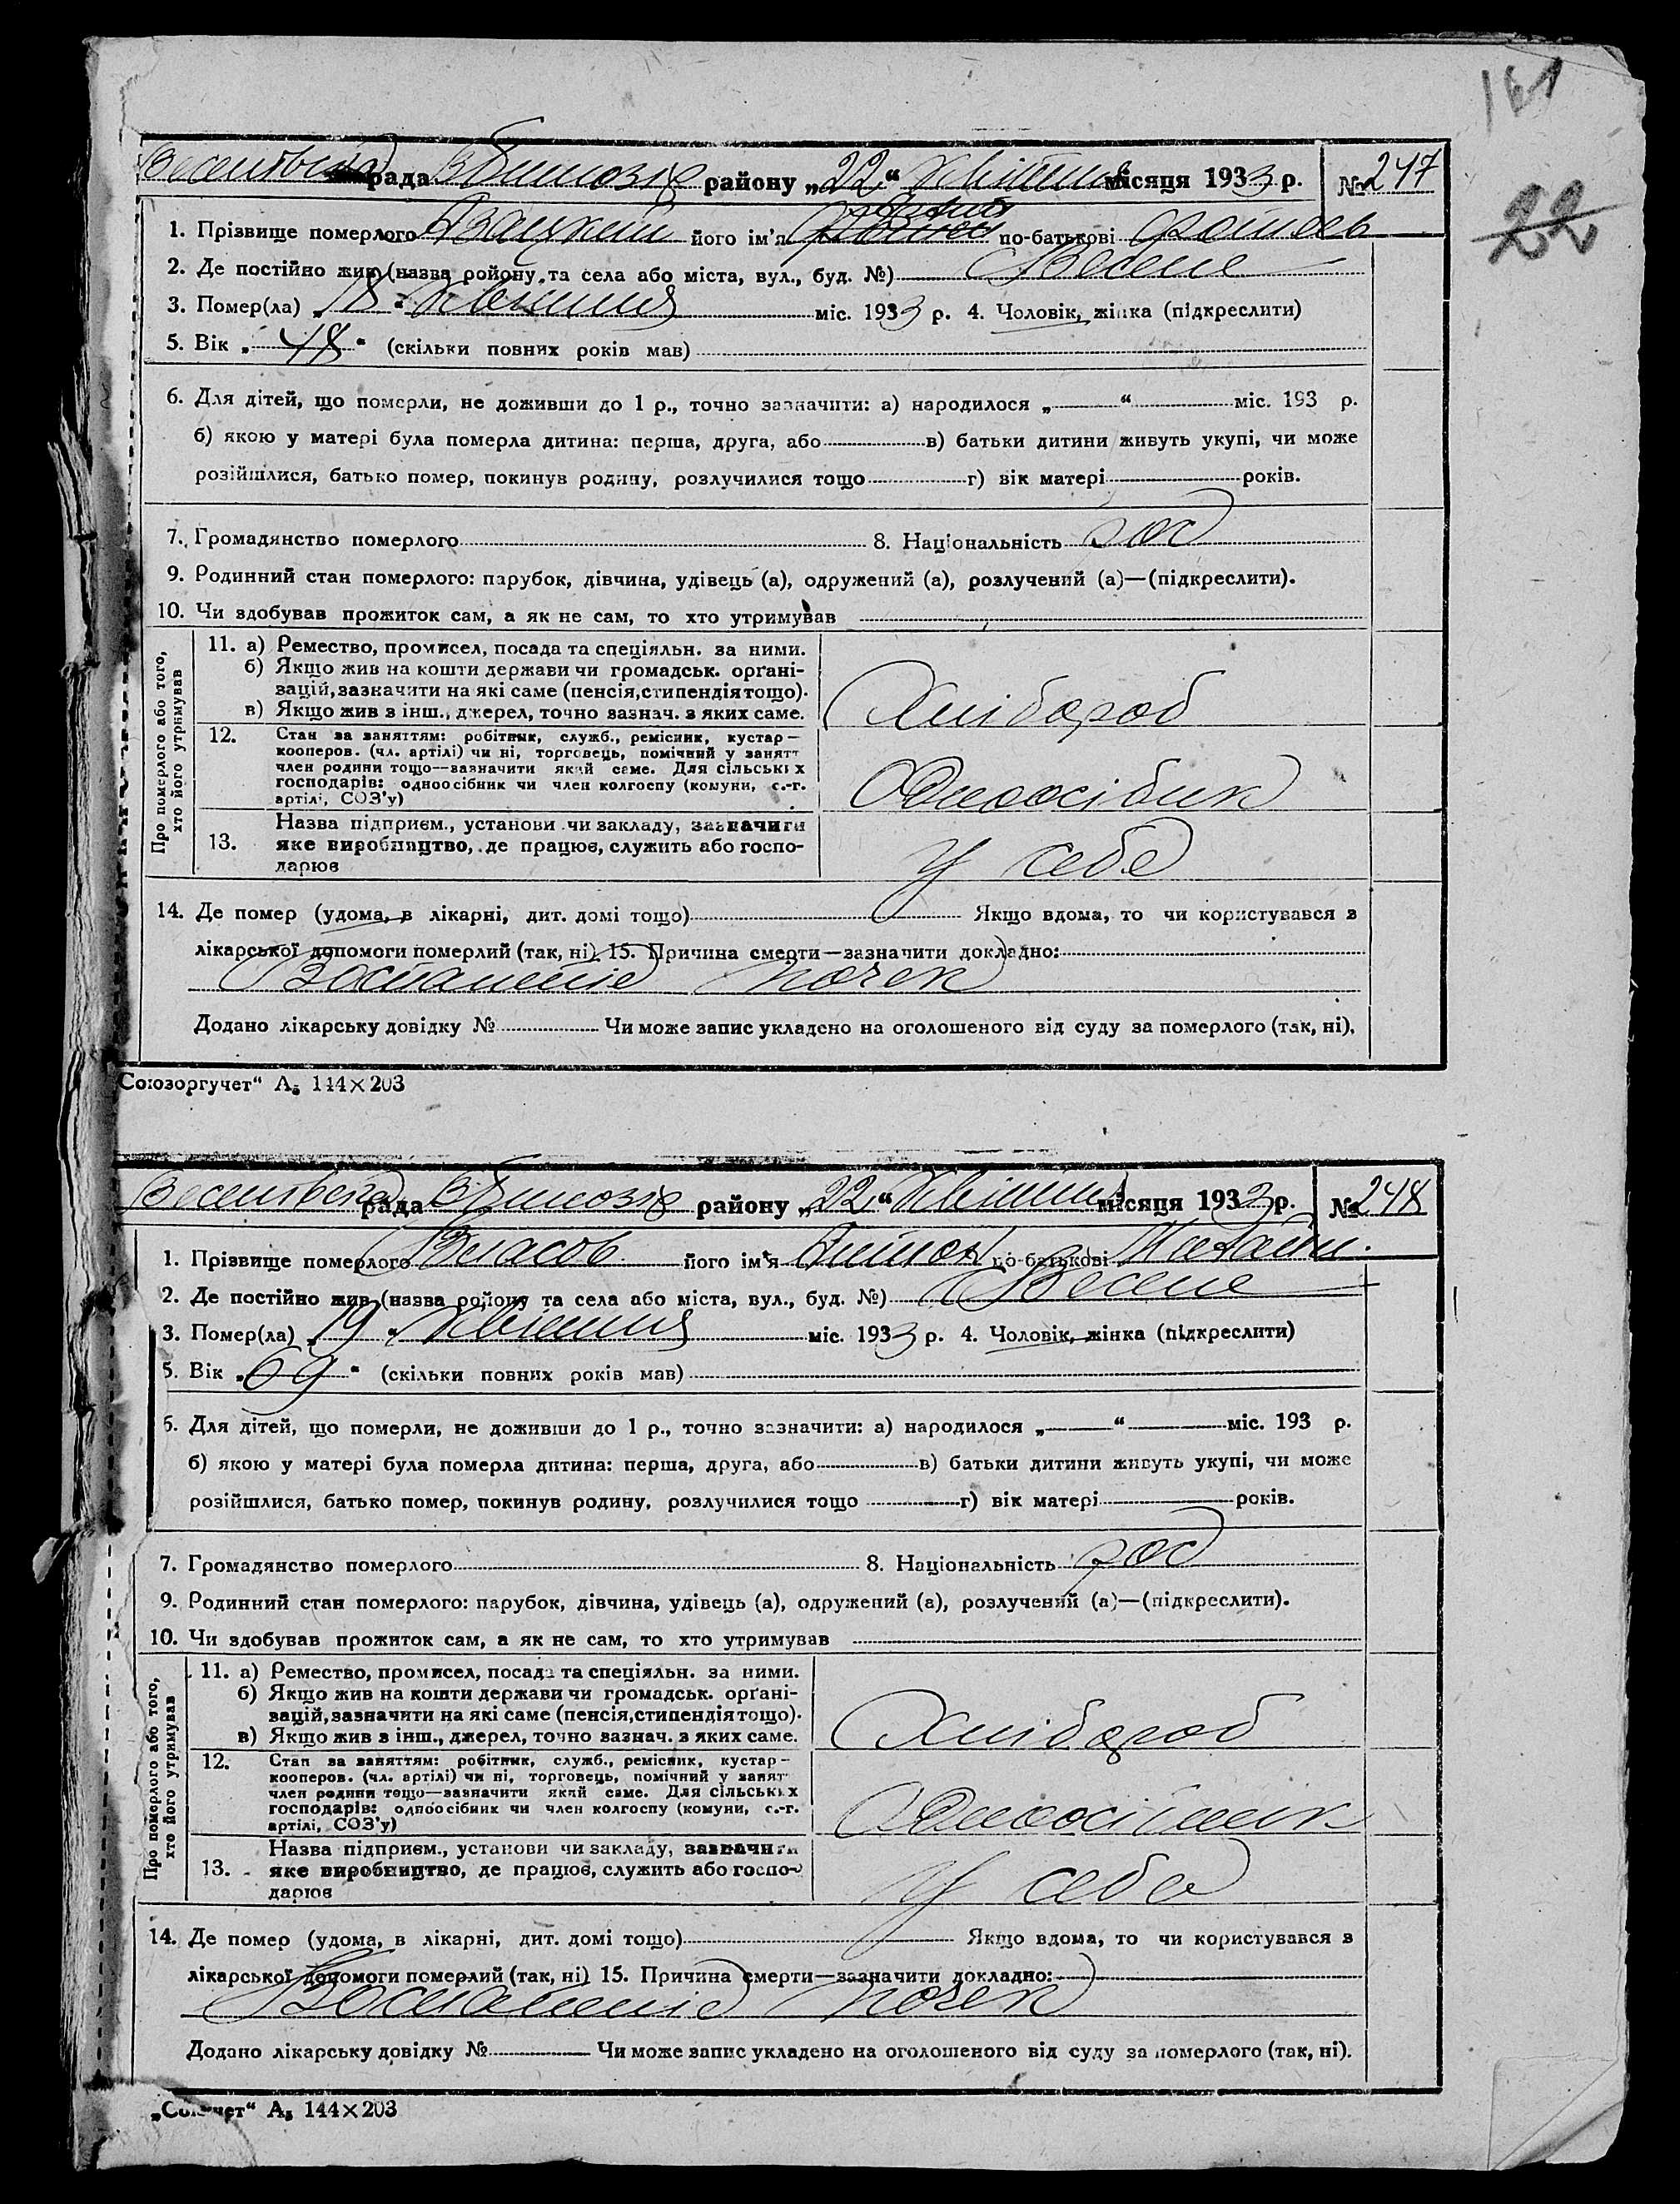 161
22
рада районy „22“ Квітня місяця 1933 р. № 247
1. Прізвище померлого його ім'я по-батькові
2. Де постійно жив (назва ройону та села або міста, вул., буд. №) Веселе
3. Помер(ла) „18“ Квітня міс. 1933 р. 4. Чоловік, жінка (підкреслити)
5. Вік „48“ (скільки повних років мав)
6. Для дітей, що померли, не доживши до 1 р., точно зазначити: а) народилося „ “ міс. 193 р.
б) якою у матері була померла дитина: перша, друга, або в) батьки дитини живуть укупі, чи може
розійшлися, батько помер, покинув родину, розлучилися тощо г) вік матері років.
7. Громадянство померлого 8. Національність рос
9. Родинний стан померлого: парубок, дівчина, удівець (а), одружений (а), розлучений (а)—(підкреслити).
10. Чи здобував прожиток сам, а як не сам, то хто утримував
Про померлого або того,
хто його утримував
11. а) Ремество, промисел, посада та спеціяльн. за ними.
б) Якщо жив на кошти держави чи громадськ. орґані-
зацій, зазначити на які саме (пенсія, стипендія тощо).
в) Якщо жив з інш., джерел, точно зазнач. з яких саме.
Хлібороб
12. Стан за заняттям: робітник, служб., ремісник, кустар—
кооперов. (чл. артілі) чи ні, торговець, помічний у занятт
член родини тощо—зазначити який саме. Для сільських
господарів: одноосібник чи член колгоспу (комуни, с.-г.
артілі, СОЗ'у)
Одноосібник
13. Назва підприєм., установи чи закладу, зазначити
яке виробництво, де працює, служить або госпо-
дарює
у себе
14. Де помер (удома, в лікарні, дит. домі тощо) Якщо вдома, то чи користувався з
лікарської допомоги померлий (так, ні) 15. Причина смерти—зазначити докладно:
Воспаление почек
Додано лікарську довідку № Чи може запис укладено на оголошеного від суду за померлого (так, ні),
Союзоргучет“ А₅ 144×203
рада районy „22“ Квітня місяця 1933 р. № 248
1. Прізвище померлого Власов його ім'я по-батькові
2. Де постійно жив (назва ройону та села або міста, вул., буд. №) Веселе
3. Помер(ла) „19“ Квітня міс. 1933 р. 4. Чоловік, жінка (підкреслити)
5. Вік „69“ (скільки повних років мав)
6. Для дітей, що померли, не доживши до 1 р., точно зазначити: а) народилося „ “ міс. 193 р.
б) якою у матері була померла дитина: перша, друга, або в) батьки дитини живуть укупі, чи може
розійшлися, батько помер, покинув родину, розлучилися тощо г) вік матері років.
7. Громадянство померлого 8. Національність рос
9. Родинний стан померлого: парубок, дівчина, удівець (а), одружений (а), розлучений (а)—(підкреслити).
10. Чи здобував прожиток сам, а як не сам, то хто утримував
Про померлого або того,
хто його утримував
11. а) Ремество, промисел, посада та спеціяльн. за ними.
б) Якщо жив на кошти держави чи громадськ. орґані-
зацій, зазначити на які саме (пенсія, стипендія тощо).
в) Якщо жив з інш., джерел, точно зазнач. з яких саме.
Хлібороб
12. Стан за заняттям: робітник, служб., ремісник, кустар—
кооперов. (чл. артілі) чи ні, торговець, помічний у занят
член родини тощо—зазначити який саме. Для сільських
господарів: одноосібник чи член колгоспу (комуни, с.-г.
артілі, СОЗ'у)
Одноосібник
13. Назва підприєм., установи чи закладу, зазначити
яке виробництво, де працює, служить або госпо-
дарює
у себе
14. Де помер (удома, в лікарні, дит. домі тощо) Якщо вдома, то чи користувався з
лікарської допомоги померлий (так, ні) 15. Причина смерти—зазначити докладно:
Воспаление почек
Додано лікарську довідку № Чи може запис укладено на оголошеного від суду за померлого (так, ні).
А₅ 144×203